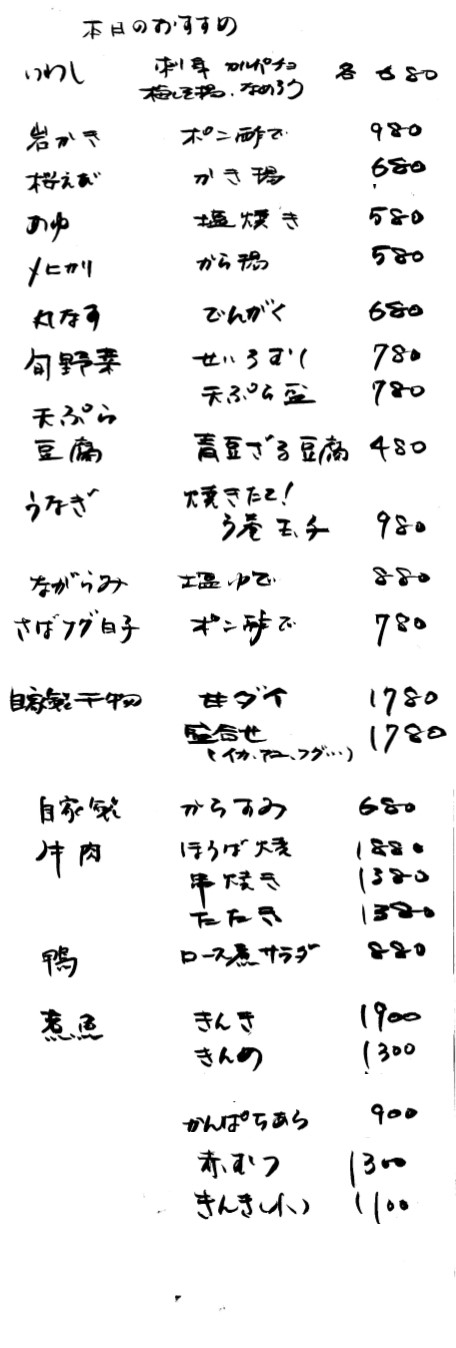 本日のおすすめ
いわし 刺身 カルパチョ 各 680
梅しそ揚、なめろう
岩かき ポン酢で 980
桜えび かき揚 680
あゆ 塩焼き 580
メヒカリ から揚 580
丸なす でんがく 680
旬野菜 せいろむし 780
天ぷら 天ぷら盛 780
豆腐 青豆ざる豆腐 480
うなぎ 焼きたて!
う巻玉子 980
ながらみ 塩ゆで 880
さばフグ白子 ポン酢で 780
自家製干物 甘ダイ 1780
盛合せ 1780
(イカ、アユ、フグ…)
自家製 からすみ 680
牛肉 ほうば焼 1880
串焼き 1380
たたき 1380
鴨 ロース煮サラダ 880
煮魚 きんき 1900
きんめ 1300
かんぱちあら 900
赤むつ 1300
きんき(小) 1100